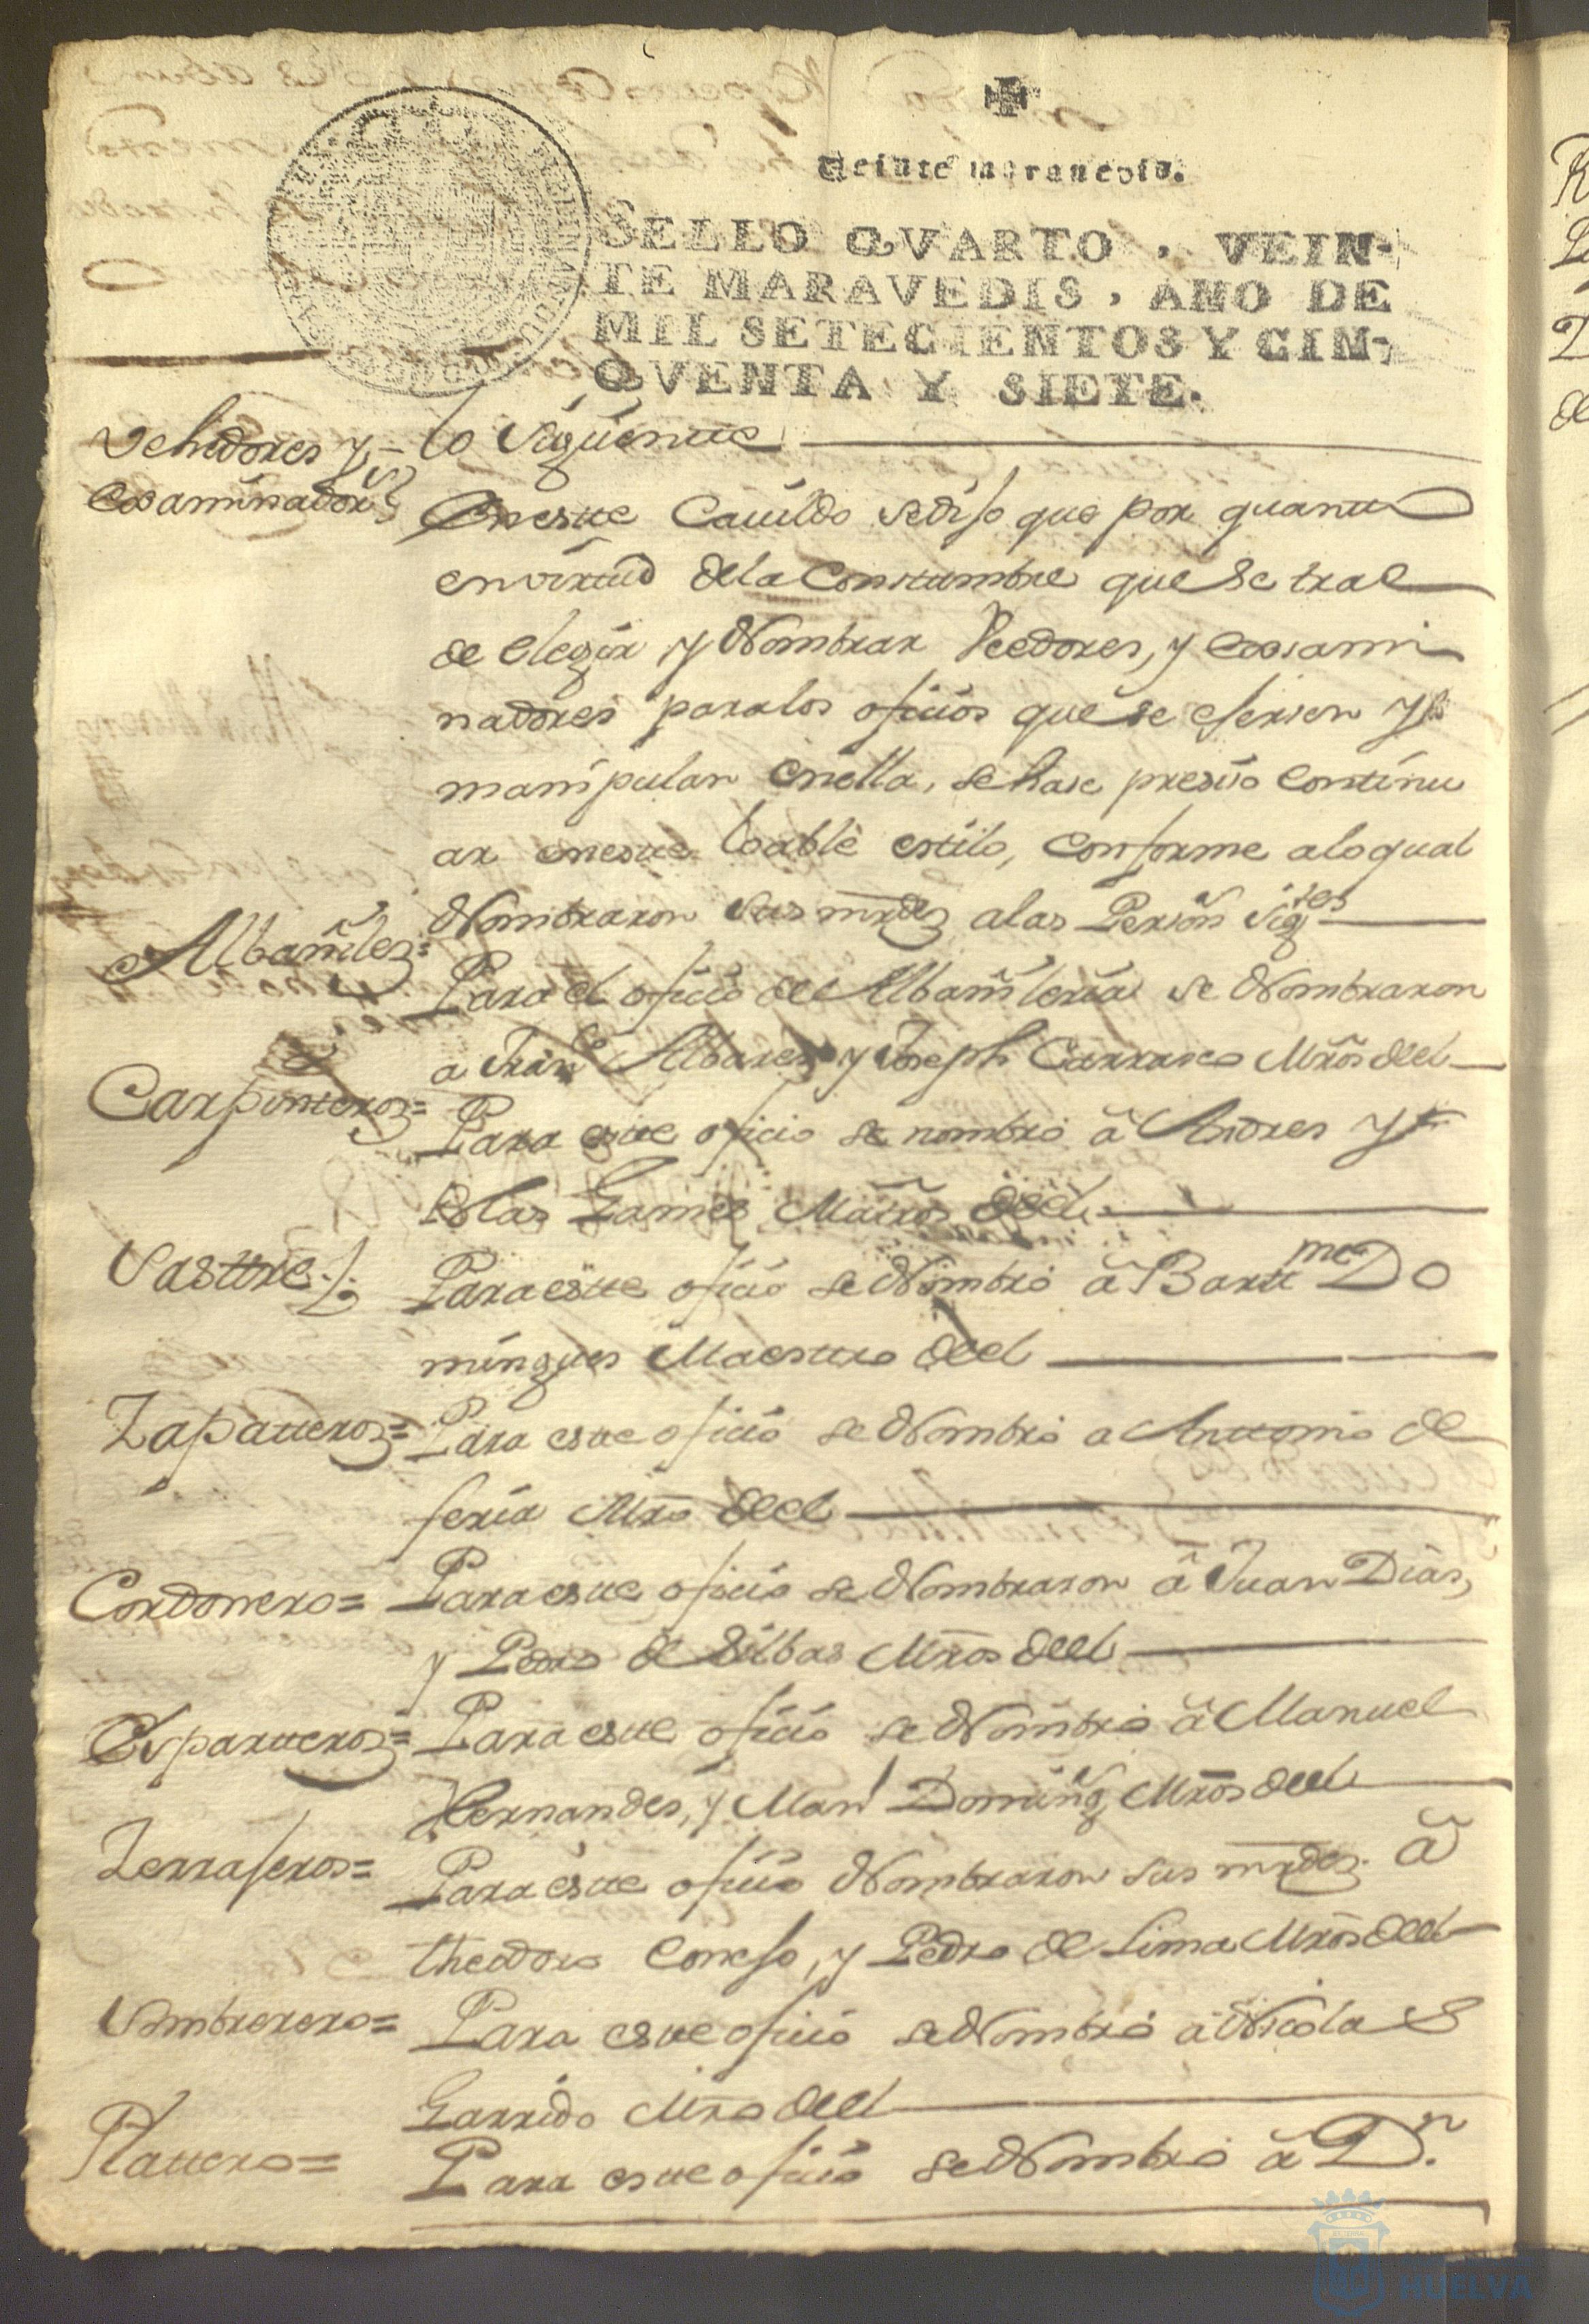 Veinte maravedis.
SELLO QVARTO, VEIN-
TE MARAVEDIS, AÑO DE
MIL SETECIENTOS Y CIN-
QVENTA Y SIETE.
Vehedores y
Exsaminador.s
lo siguiente
En este Cauildo se dijo que por quanto
en virtud de la Constumbre que se trae
de elegir y Nombrar Veedores, y exsami
nadores para los oficios que se ejersen y
manipulan en ella, se hase presiso continu
ar en este loable estilo, conforme a lo qual
Nombraron sus mrdes a las Person.s sig.tes
Albañiles=
Para el oficio de Albañileria se Nombraron
a Fran.co Albares y Joseph Carrasco Mros de el
Carpinteros=
Para este oficio se nombró â Andres y
Blas Gomes Maîros de el
Sastre
Para este oficio se Nombró â Bartt.me Do
mingues Maesttro de el
Zapatteros=
Para este oficio se Nombró a Anttonio de
feria Mro de el
Cordonero=
Para este oficio se Nombraron â Juan Dias,
y Pedro de Silbas Mros de el
Esparteros=
Para este oficio se Nombró â Manuel
Hernandes, y Man.l Doming.s Mros de el
Zerrajeros=
Para este oficio Nombraron sus mrdes. â
theodoro Conejo, y Pedro de Lima Mros de el
Sombrerero=
Para este oficio se Nombró â Nicolas
Garrido Mro de el
Plattero=
Para este oficio se Nombró â D.n
HUELVA